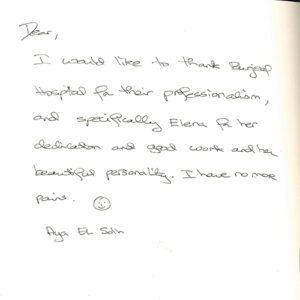 Dear,
I would like to thank Burjeel
Hospital for their professionalism,
and specifically Elena for her
dedication and good work and her
beautiful personality. I have no more
pains.
Aya El